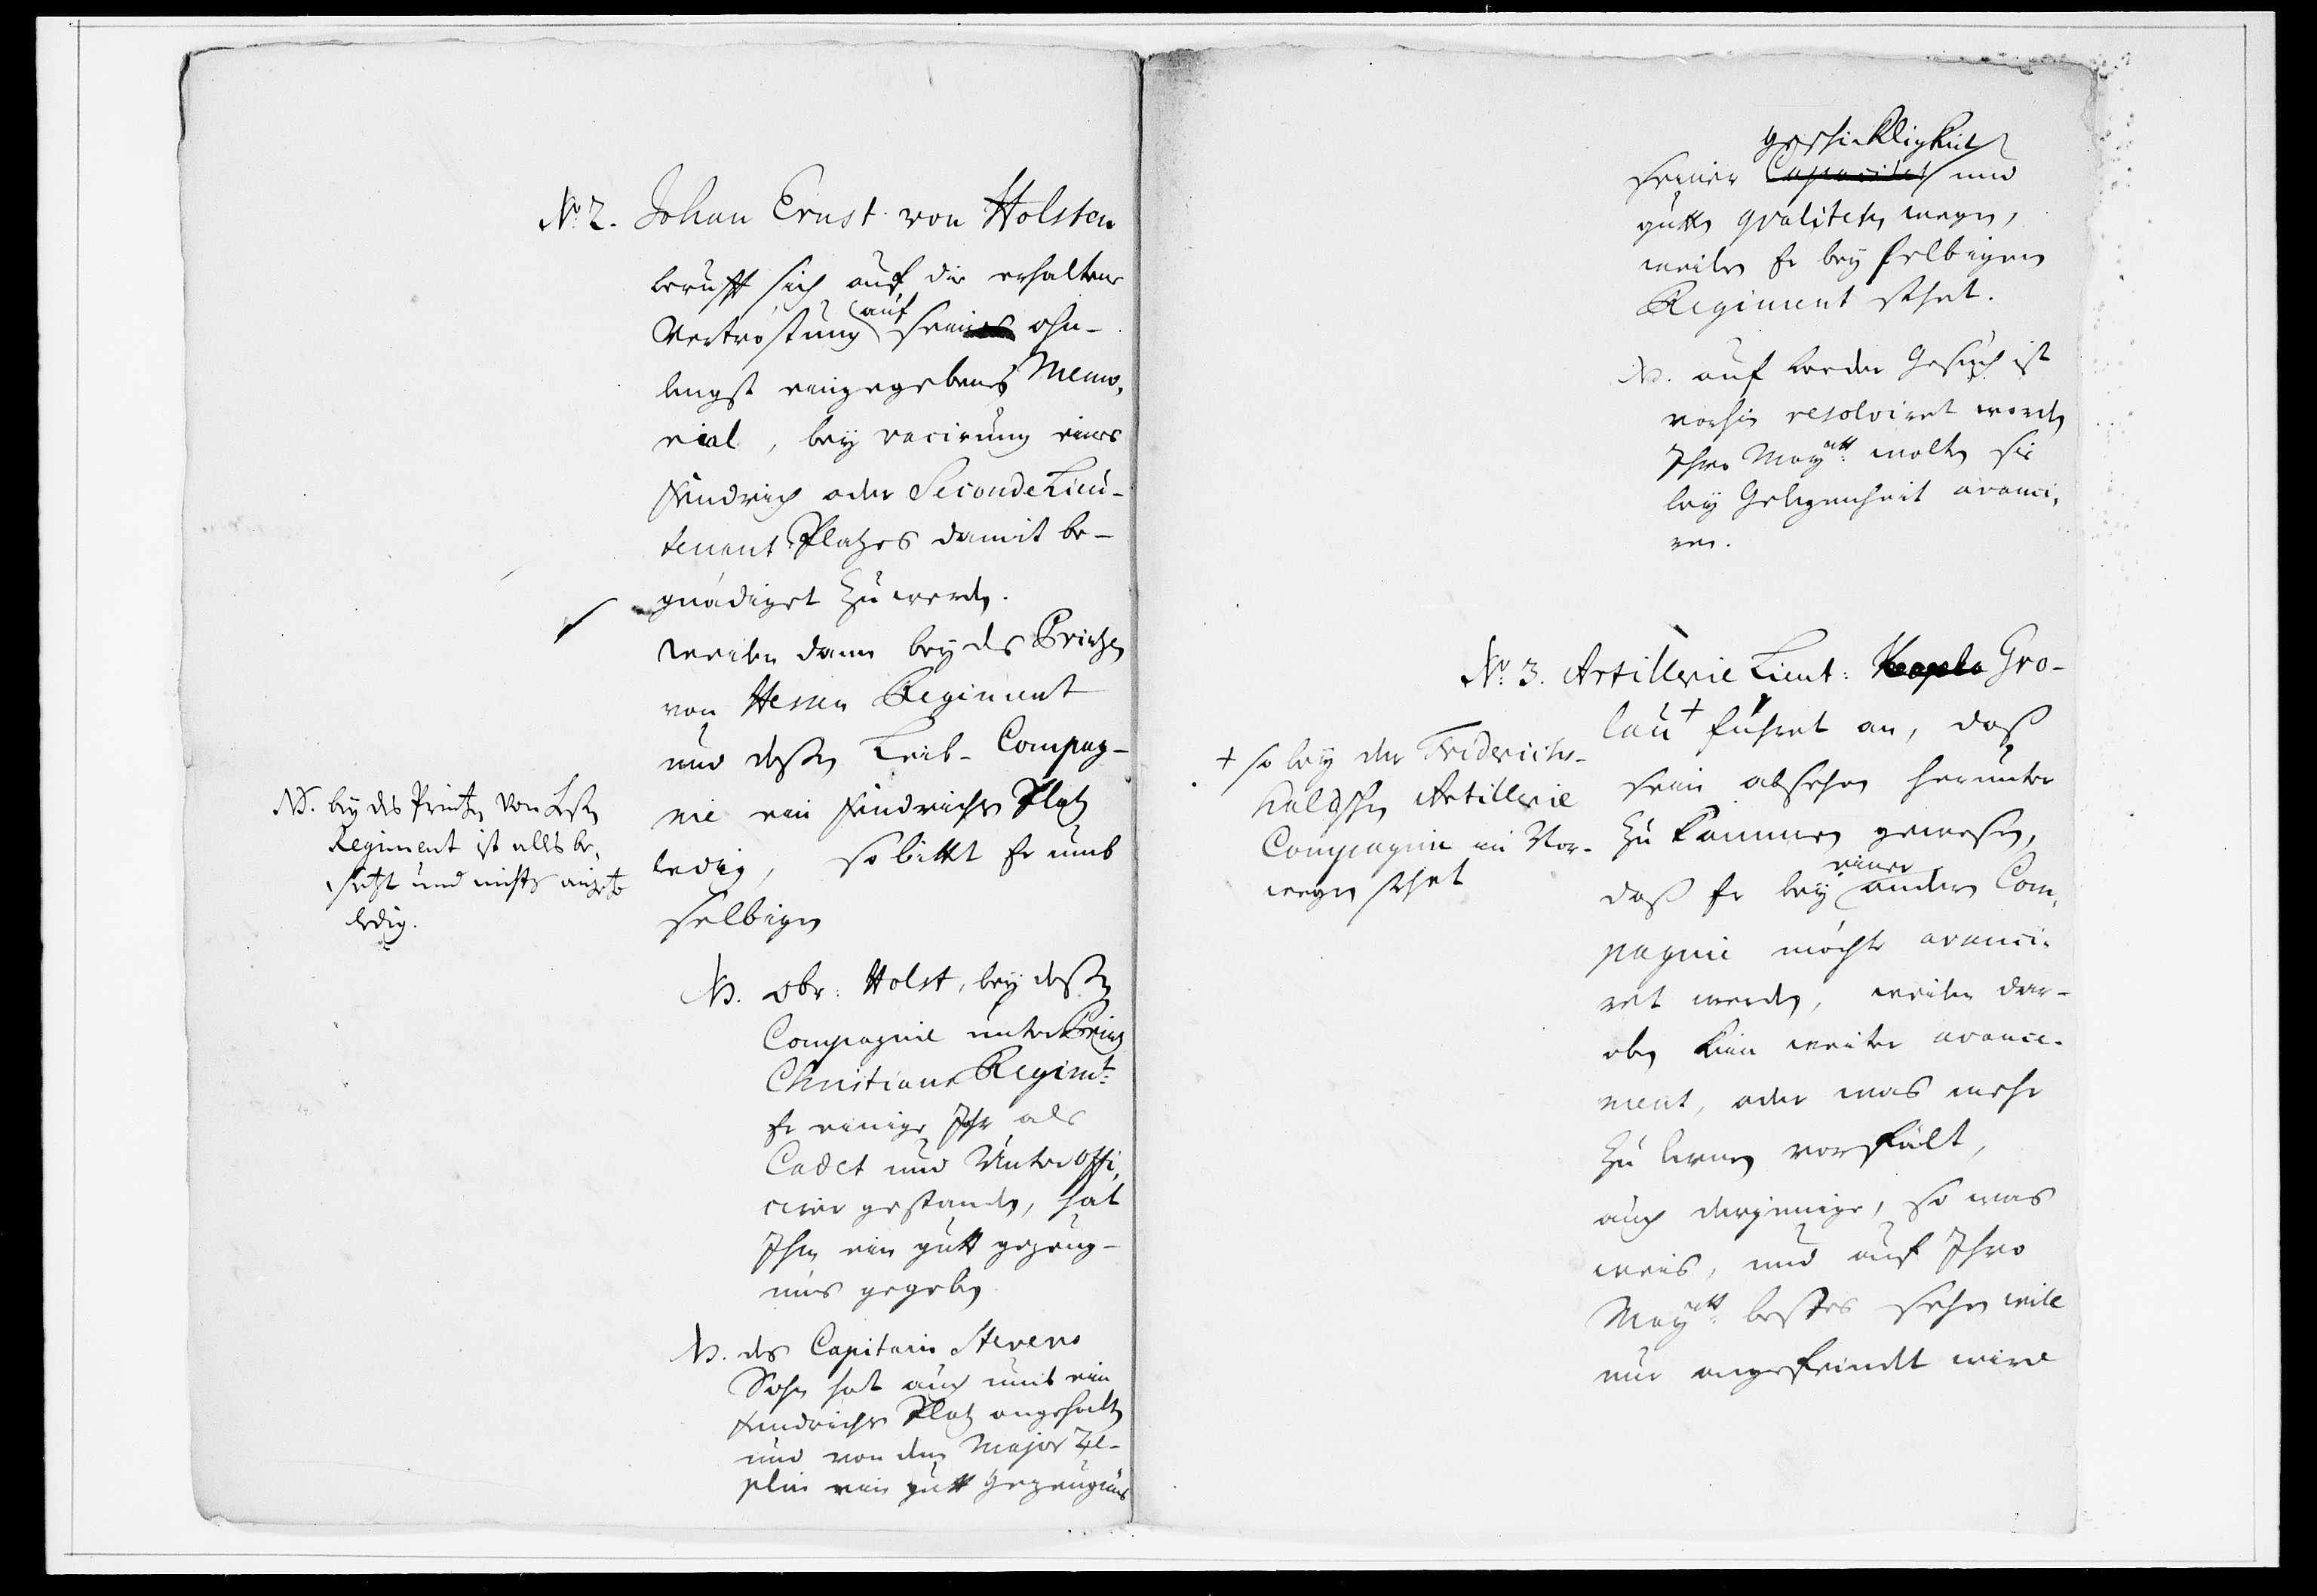 No 2. Johan Ernst von Holsten
berufft sich auf die erhaltene
Vertröstung auf sein ohn-
lengst eingegebenes Memo,
rial, bey vacirung eines
Fendrich oder Seconde Lieu-
tenant Platzes damit be-
gnädiget zu werden.
weilen dann bey des Printzen
von Hessen Regiment
und deßen Leib-Compag-
nie ein Fendrichs Platz
ledig, so bittet Er umb
selbigen
NB. bey des Printzen von Heßen
Regiment ist alles be,
setzt und nichts anjetzo
ledig.
NB. Obr: Holst, bey deßen
Compagnie unter Prinz
Christians Regimt:
Er einige Jahr als
Cadet und Unteroffi,
cirer gestanden, hat
Ihm ein gutt gezeug-
nüs gegeben
NB. des Capitain Stevens
Sohn hat auch umb ein
Fendrichs Platz angehalten
und von dem Major Ze-
plin ein gutt Gezeugnüs
seiner Geschicklichkeit und
gutten qualiteten wegen,
weilen Er bey selbigem
Regiment stehet.
NB. auf beeder Gesuch ist
vorhin resolviret worden
Ihro Maytt: wolten sie
bey Gelegenheit avanci,
ren.
No 3. Artillerie Lieut: Gro-
lau + führet an, daß
sein absehen herunter
zu kommen gewesen,
daß Er bey einer andern Com,
pagnie möchte avanci-
ret werden, weilen dar-
oben kein weiter avance-
ment, oder was mehr
zu lernen vorfält,
auch derjenige, so was
weis, und auf Ihro
Maytt: bestes sehen will
nur angefeindet wird
+ so bey der Friderichs-
haldschen Artillerie
Compagnie in Nor-
wegen stehet